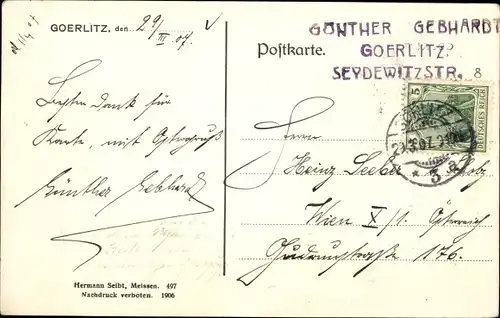 GOERLITZ, den 29/III.07.
GÜNTHER GEBHARDT
GOERLITZ
SEYDEWITZSTR. 8
Postkarte.
5
DEUTSCHES REICH
Besten Dank für
Karte, mit Ostergruß
Günther Gebhardt
Herrn
Heinz Seeber
Wien X/1. Österreich
176.
Hermann Seibt, Meissen. 497
Nachdruck verboten. 1906